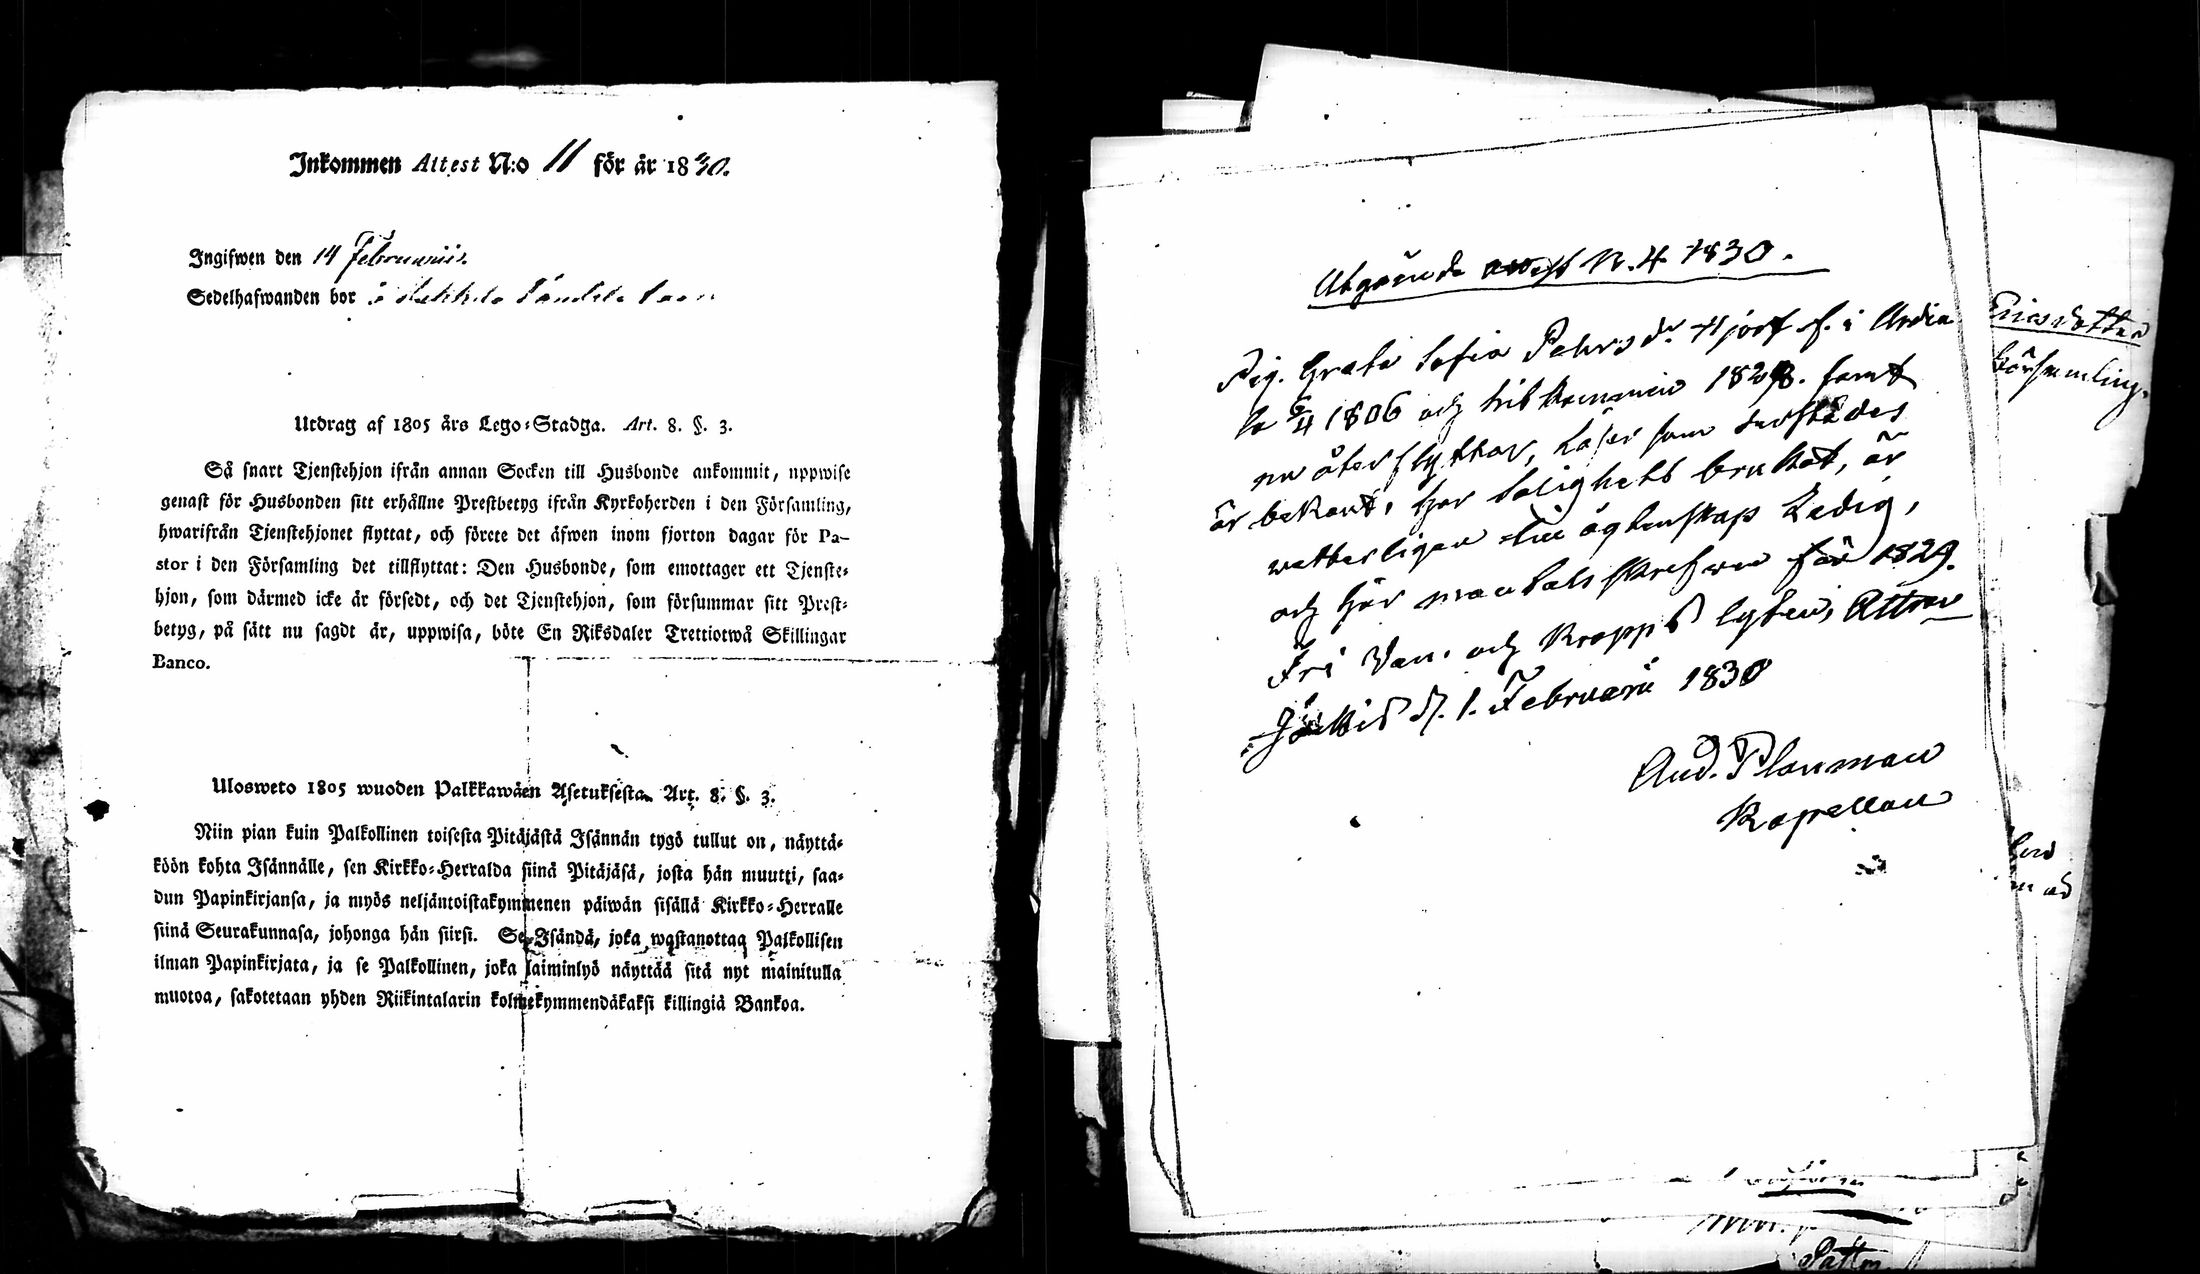 Inkommen Attest N:o 11 för år 1830.
Ingifwen den 14 Februarii.
Sedelhafwanden bor i
Utdrag af 1805 års Lego-Stadga. Art. 8. §. 3.
Så snart Tjenstehjon ifrån annan Socken till Husbonde ankommit, uppwise
genast för Husbonden sitt erhållne Prestbetyg ifrån Kyrkoherden i den Församling,
hwarifrån Tjenstehjonet flyttat, och förete det äfwen inom fjorton dagar för Pa-
stor i den Församling det tillflyttat: Den Husbonde, som emottager ett Tjenste-
hjon, som därmed icke är försedt, och det Tjenstehjon, som försummar sitt Prest-
betyg, på sätt nu sagdt är, uppwisa, böte En Riksdaler Trettiotwå Skillingar
Banco.
Ulosweto 1805 wuoden Palkkawäen Asetuksesta. Art. 8. §. 3.
Niin pian kuin Palkollinen toisesta Pitäjästä Isännän tygö tullut on, näyttä-
köön kohta Isännälle, sen Kirkko-Herralda siinä Pitäjäsä, josta hän muutti, saa-
dun Papinkirjansa, ja myös neljäntoistakymmenen päiwän sisällä Kirkko-Herralle
siinä Seurakunnasa, johonga hän siirsi. Se Isändä, joka wastanottaa Palkollisen
ilman Papinkirjata, ja se Palkollinen, joka laiminlyö näyttää sitä nyt mainitulla
muotoa, sakotetaan yhden Riikintalarin kolmekymmendäkaksi killingiä Bankoa.
Utgående attest N. 4 1830.
Pig. Greta Sofia Pehrsd. Hjort f. i Urdia
la 6/4 1806 och hitkommen 1828. samt
nu återflyttar, läser som
är bekant, har salighets brukat, är
witterligen till ägtenskap Ledig,
och här mantalsskrefwen för 1829.
Fri Van. och Kropps lyten, Attest
Jockis d. 1. Februarii 1830
And. Planman
Kapellan
Ericsdotter
församling.